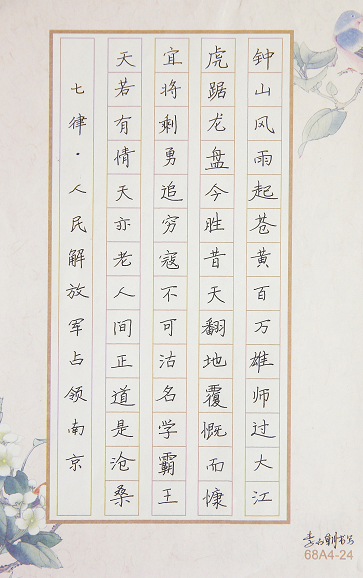 钟山风雨起苍黄百万雄师过大江
虎踞龙盘今胜昔天翻地覆慨而慷
宜将剩勇追穷寇不可沽名学霸王
天若有情天亦老人间正道是沧桑
七律·人民解放军占领南京
68A4-24